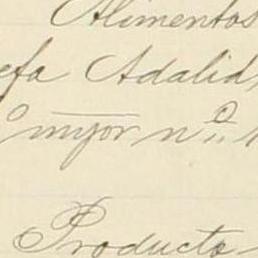 Alimentos
efa Adalid
myor nº
Producto